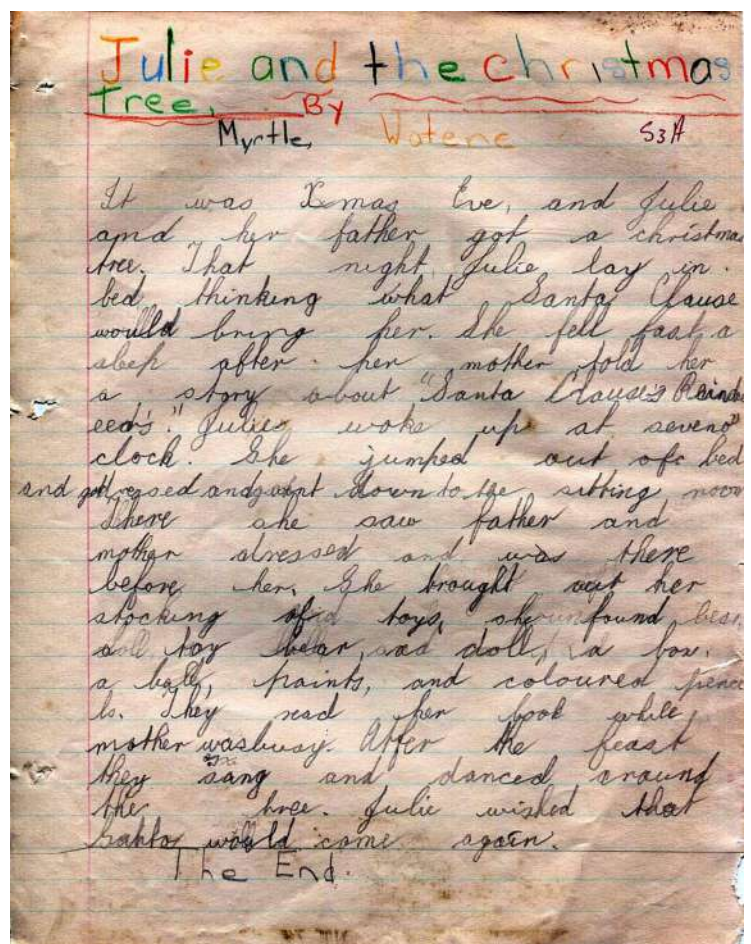 Julie and the christmas
Tree, By
Myrtle, Watene S3A
It was Xmas Eve, and Julie
and her father got a christmas
tree. That night Julie lay in
bed thinking what Santa Clause
would bring her. She fell fast a
sleep after her mother told her
a story about "Santa Clause's Reind
eed's." Julie woke up at seveno"
clock. She jumped out of bed
and got dressed and went down to the sitting room
There she saw father and
mother dressed and was there
before her. She brought out her
stocking of toys, she found bear,
doll, toy bear, and doll, a box.
a ball, paints, and coloured penci
ls. They read her book while,
mother was busy. After the feast
they sang and danced around
the tree. Julie wished that
Santa would come again.
The End.